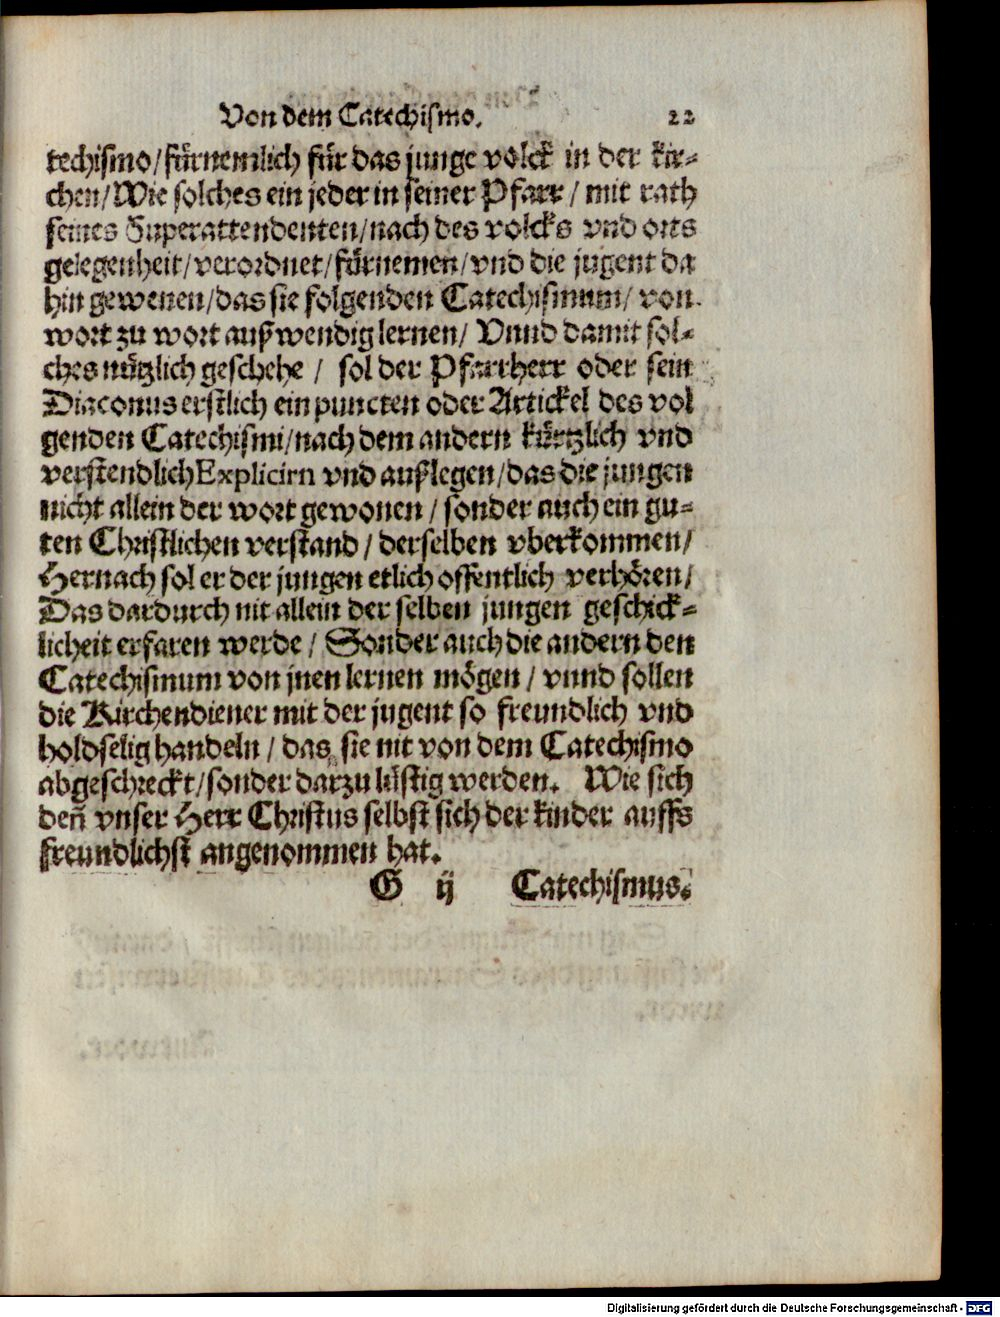 Von dem Catechismo. 22
techismo/fürnemlich für das junge volck in der kir-
chen/Wie solches ein jeder in seiner Pfarr/mit rath
seines Superattendenten/nach des volcks vnd orts
gelegenheit/verordnet/fürnemen/vnd die jugent da
hin gewenen/das sie folgenden Catechismum/von
wort zu wort außwendig lernen/ Vnnd damit sol-
ches nützlich geschehe / sol der Pfarrherr oder sein
Diaconus erstlich ein puncten oder Artickel des vol
genden Catechismi/nach dem andern kürtzlich vnd
verstendlich Explicirn vnd außlegen/das die jungen
nicht allein der wort gewonen/sonder auch ein gu-
ten Christlichen verstand/derselben vberkommen/
Hernach sol er der jungen etlich offentlich verhören/
Das dardurch nit allein der selben jungen geschick-
licheit erfaren werde/ Sonder auch die andern den
Catechismum von jnen lernen mögen/vnnd sollen
die Kirchendiener mit der jugent so freundlich vnd
holdselig handeln/das sie nit von dem Catechismo
abgeschreckt/sonder darzu lüstig werden. Wie sich
deñ vnser Herr Christus selbst sich der kinder auffs
freundlichst angenommen hat.
G ij Catechismus.
Digitalisierung gefördert durch die Deutsche Forschungsgemeinschaft - DFG